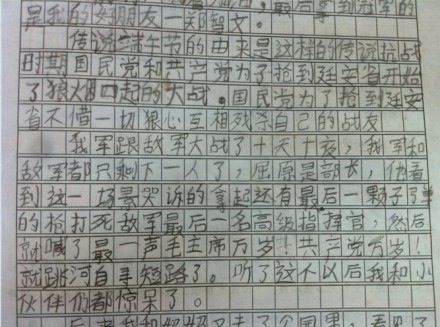 是我的好朋友一郑智文。
传说端午节的由来是这样的传说抗战
时期国民党和共产党为了抢到延安省开始
了狼火四起的大战。国民党为了抢到延安
省不惜一切狠心互相残杀自己的战友
我军跟敌军大战了十天十夜，我军和
敌军都只剩下一人了，屈原是部长，他看
到这一场景哭诉的拿起还有最后一颗子弹
的枪打死敌军最后一名高级指挥官，然后
就喊了最一声毛主席万岁！共产党万岁！
就跳河自寻短路了。听了这不以后我和小
伙伴们都惊呆了。